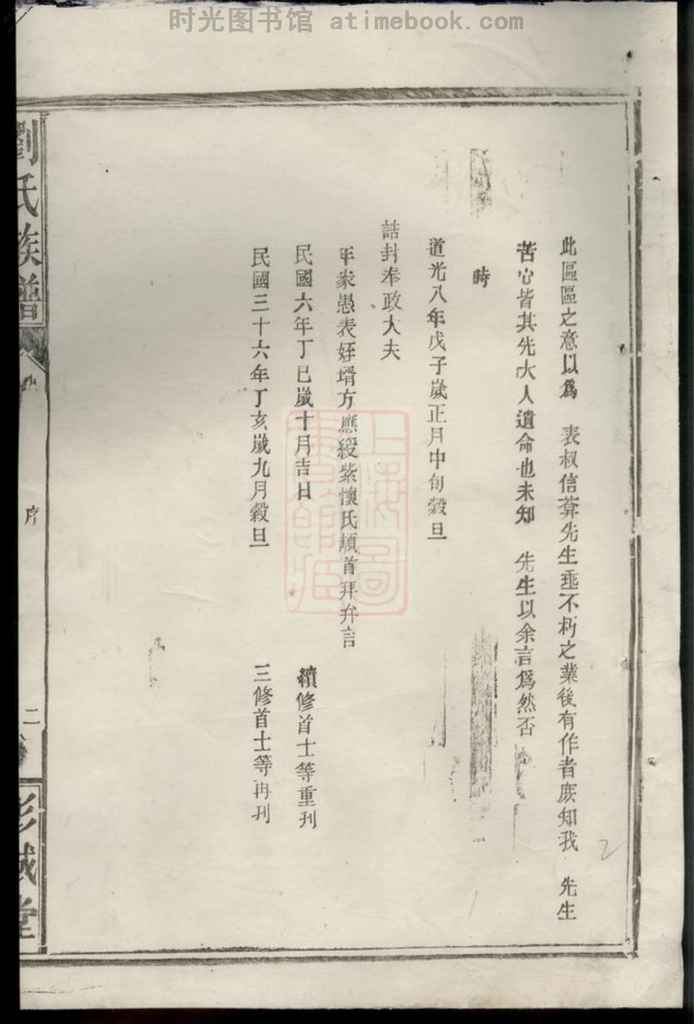 时光图书馆 atimebook.com
此區區之意以爲 表叔信葊先生垂不朽之業後有作者庶知我 先生
苦心皆其先大人遺命也未知 先生以余言爲然否
時
道光八年戊子歲正月中旬穀旦
誥封奉政大夫
年家愚表姪壻方應綬紫懷氏頓首拜弁言
民國六年丁巳歲十月吉日 續修首士等重刋
民國三十六年丁亥歲九月穀旦 三修首士等再刋
劉氏族譜
序
二
彭城堂
2